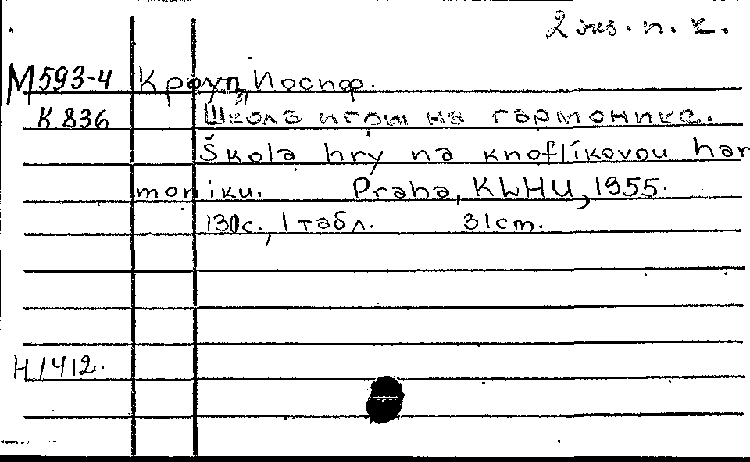 2 экз. п. z.
М593-4 Кроуп, Иосиф.
К 836 Школа игры на гармонике.
Škola hry na knoflíkovou har
moniku. Praha, KLHU, 1955.
130с., 1 табл. 31cm.
Н 1412.